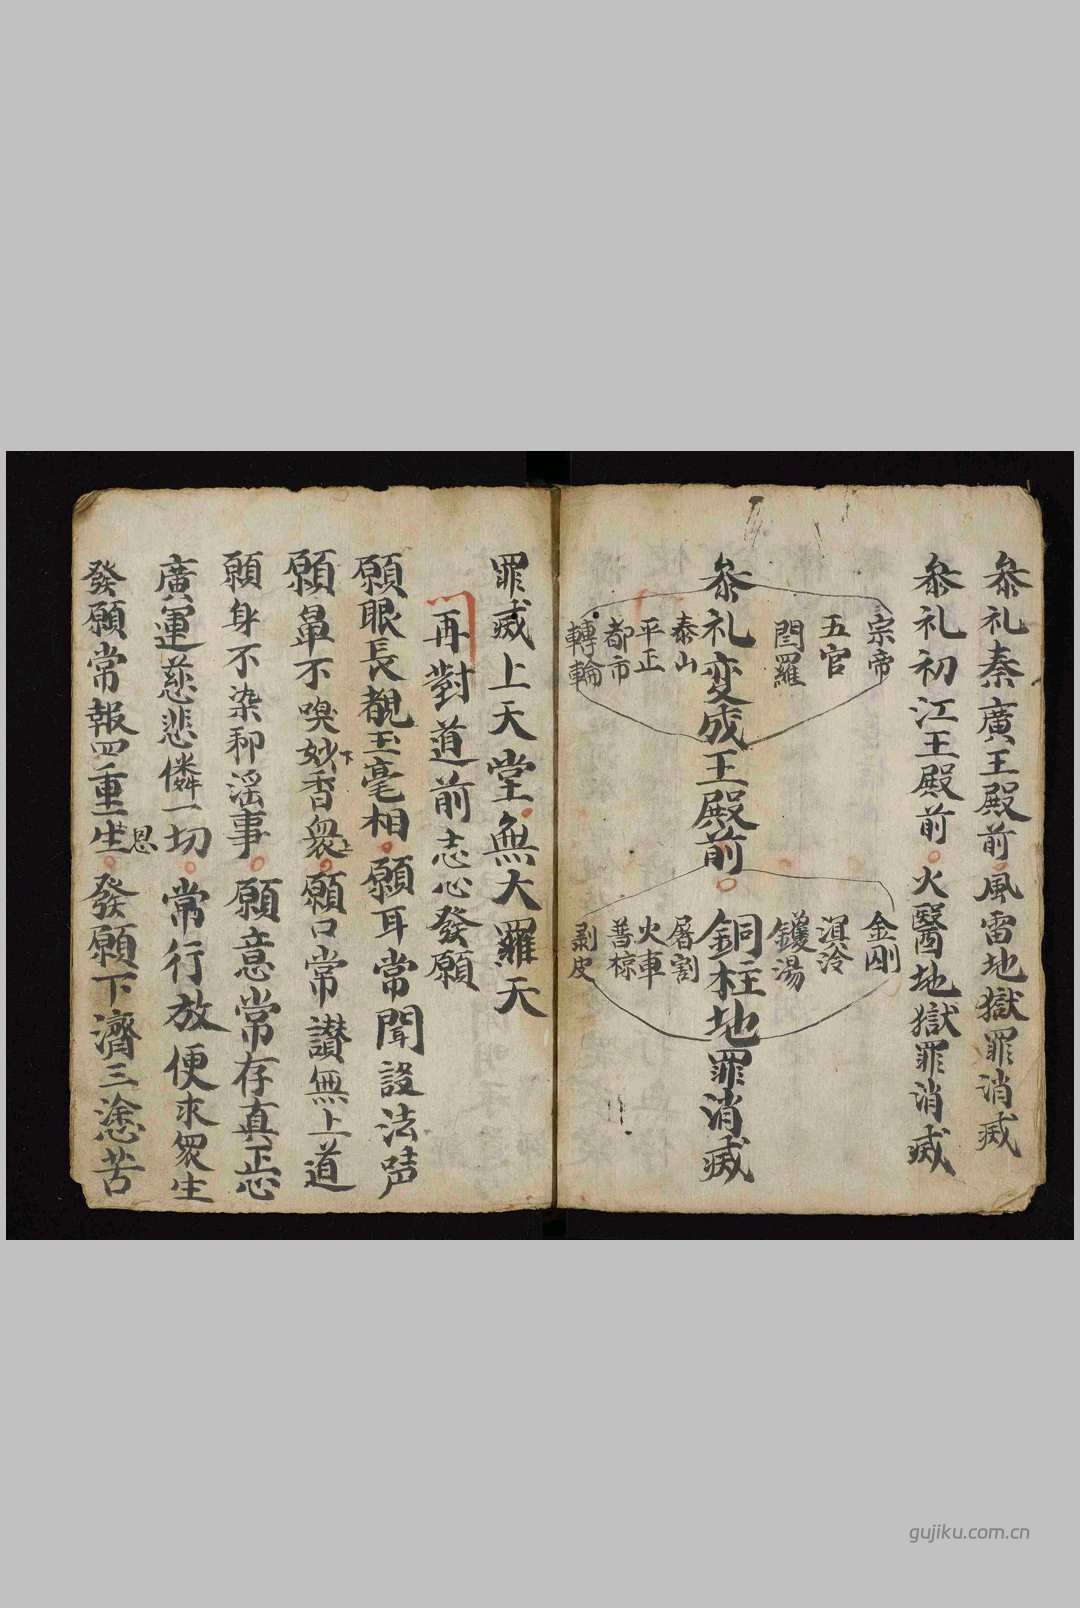 叅礼秦廣王殿前風雷地獄罪消滅
叅礼初江王殿前火醫地獄罪消滅
宗帝
五官
閻羅
叅礼变成王殿前
泰山
平正
都市
轉輪
金剛
溟冷
鑊湯
銅柱地罪消滅
屠割
火車
普椋
剥皮
罪滅上天堂無大羅天
再對道前志心發願
願眼長覩玉毫相願耳常聞說法声
願鼻不嗅妙香衆願口常讃無上道
下
上
願身不染邪滛事願意常存真正心
廣運慈悲憐一切常行放便求衆生
發願常報四重生發願下濟三塗苦
恩
gujiku.com.cn